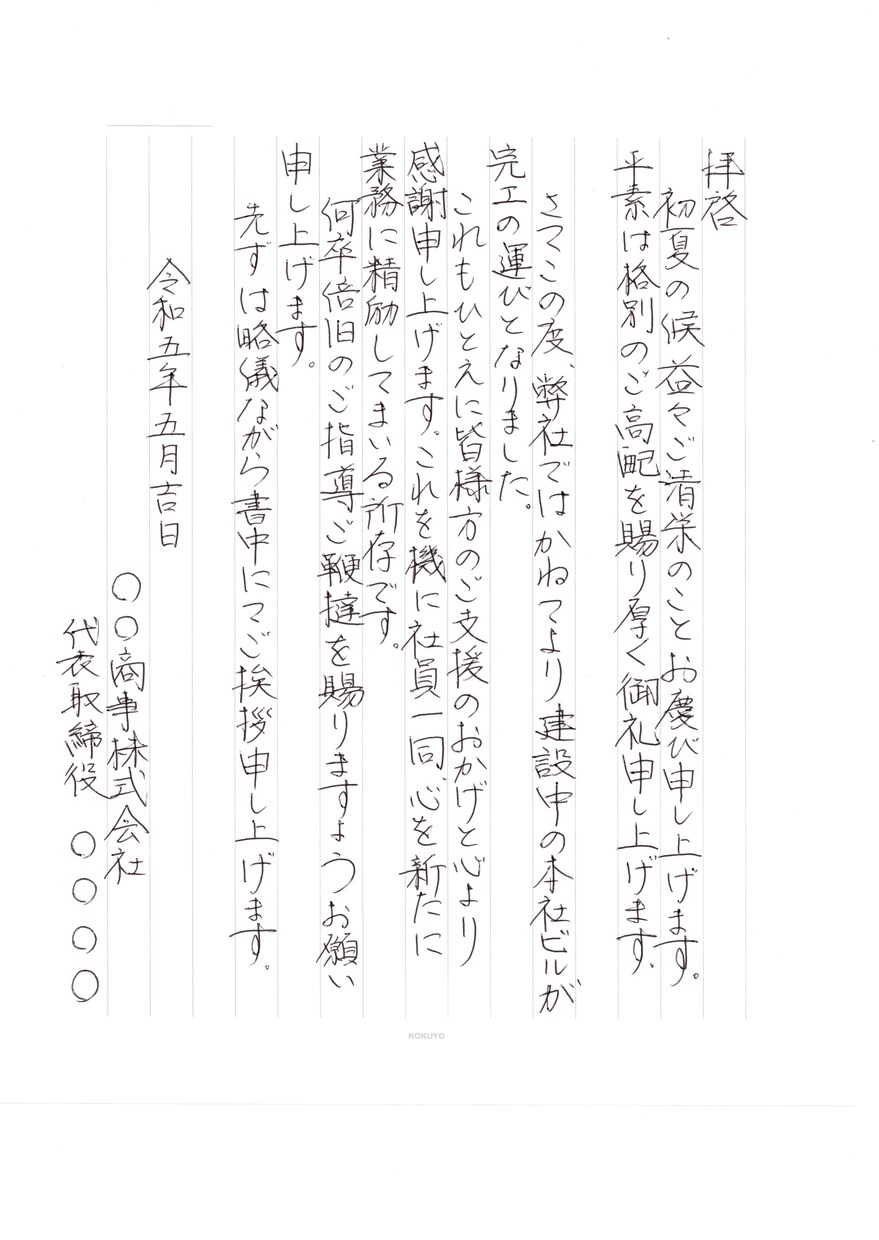 拝啓
初夏の候 益々ご清栄のことお慶び申し上げます。
平素は格別のご高配を賜り厚く御礼申し上げます。
さてこの度、弊社ではかねてより建設中の本社ビルが
完工の運びとなりました。
これもひとえに皆様方のご支援のおかげと心より
感謝申し上げます。これを機に社員一同、心を新たに
業務に精励してまいる所存です。
何卒倍旧のご指導ご鞭撻を賜りますようお願い
申し上げます。
先ずは略儀ながら書中にてご挨拶申し上げます。
令和五年五月吉日
〇〇商事株式会社
代表取締役 〇〇〇〇
KOKUYO